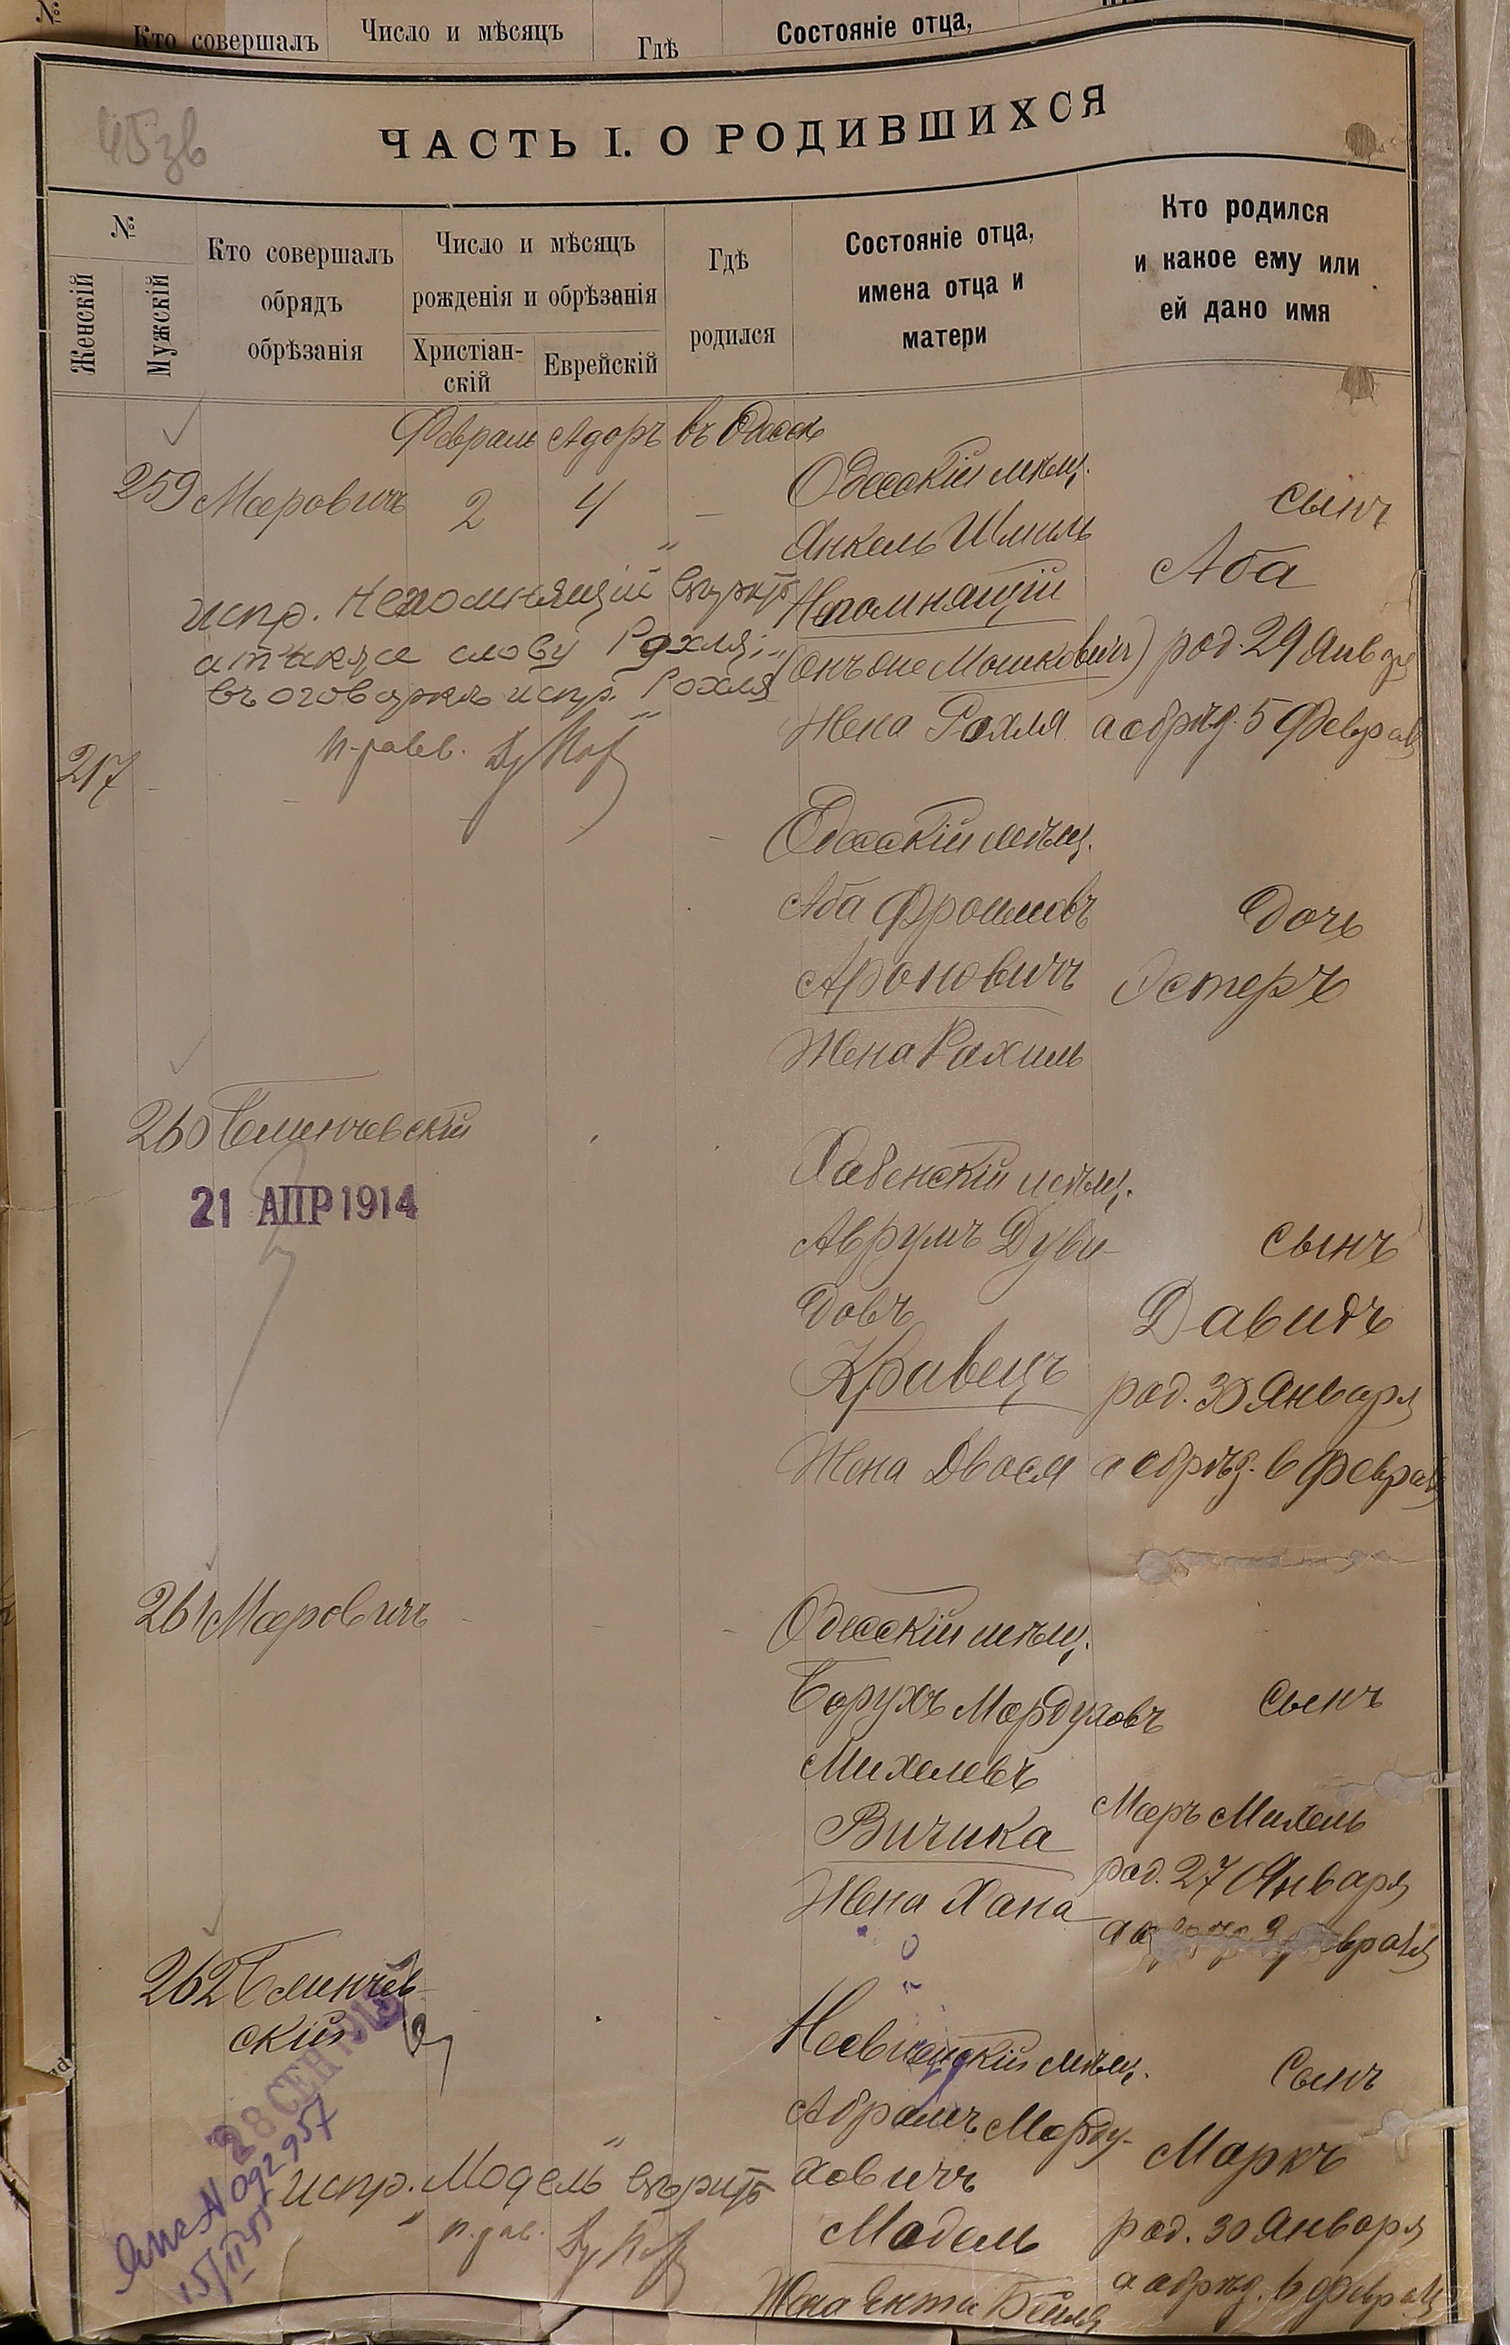 №
Кто совершалъ
Число и мѣсяцъ
Гдѣ
Состояніе отца,
45зв
ЧАСТЬ I. О РОДИВШИХСЯ
№
Женскій
Мужскій
Кто совершалъ
обрядъ
обрѣзанія
Число и мѣсяцъ
рожденія и обрѣзанія
Христіан-
скій
Еврейскій
Гдѣ
родился
Состояніе отца,
имена отца и
матери
Кто родился
и какое ему или
ей дано имя
Февраль Адоръ въ Одессѣ
259 Мееровичъ 2 4 —
Одесскій мѣщ.
Янкель Шмиль
Непомнящій
(онъ же Мошковичъ)
Жена Рохля
сынъ
Аба
род. 29 Января
а обрѣз. 5 Февраля
испр. "Непомнящій" вѣрить
слову Рохля;
въ оговоркѣ испр. "Рохля"
п-равв.
217
Одесскій мѣщ.
Аба Фроимовъ
Ароновичъ
Жена Рахиль
Дочь
Эстеръ
260 Блинчевскій
21 АПР 1914
Хабенскій мѣщ.
Аврумъ Дуви-
довъ
Кравецъ
Жена Двося
сынъ
Давидъ
род. 30 Января
а обрѣз. 6 Февраля
261 Мееровичъ
Одесскій мѣщ.
Борухъ Мордуховъ
Михелевъ
Вичика
Жена Хана
сынъ
Меръ Михель
род. 27 Января
262 Блинчев-
скій
28 СЕН 1915
Несвижскій мѣщ.
АбрамъМорду-
ховичъ
Модель
Жена Бейля
Сынъ
Маркъ
род. 30 Января
а обрѣз. 6 Февраля
испр. "Модель" вѣрить
п. рав.
N 092957
15/II 55